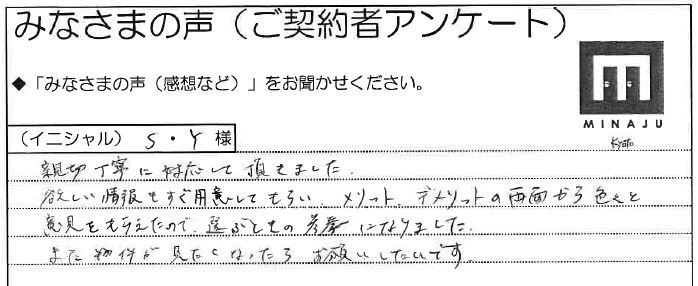 みなさまの声（ご契約者アンケート）
◆「みなさまの声（感想など）」をお聞かせください。
MINAJU
Kyoto
（イニシャル） S・Y 様
親切丁寧に対応して頂きました。
欲しい情報もすぐ用意してもらい、メリット、デメリットの両面から色々と
意見をもらえたので、選ぶときの参考になりました。
また物件が見たくなったらお願いしたいです。